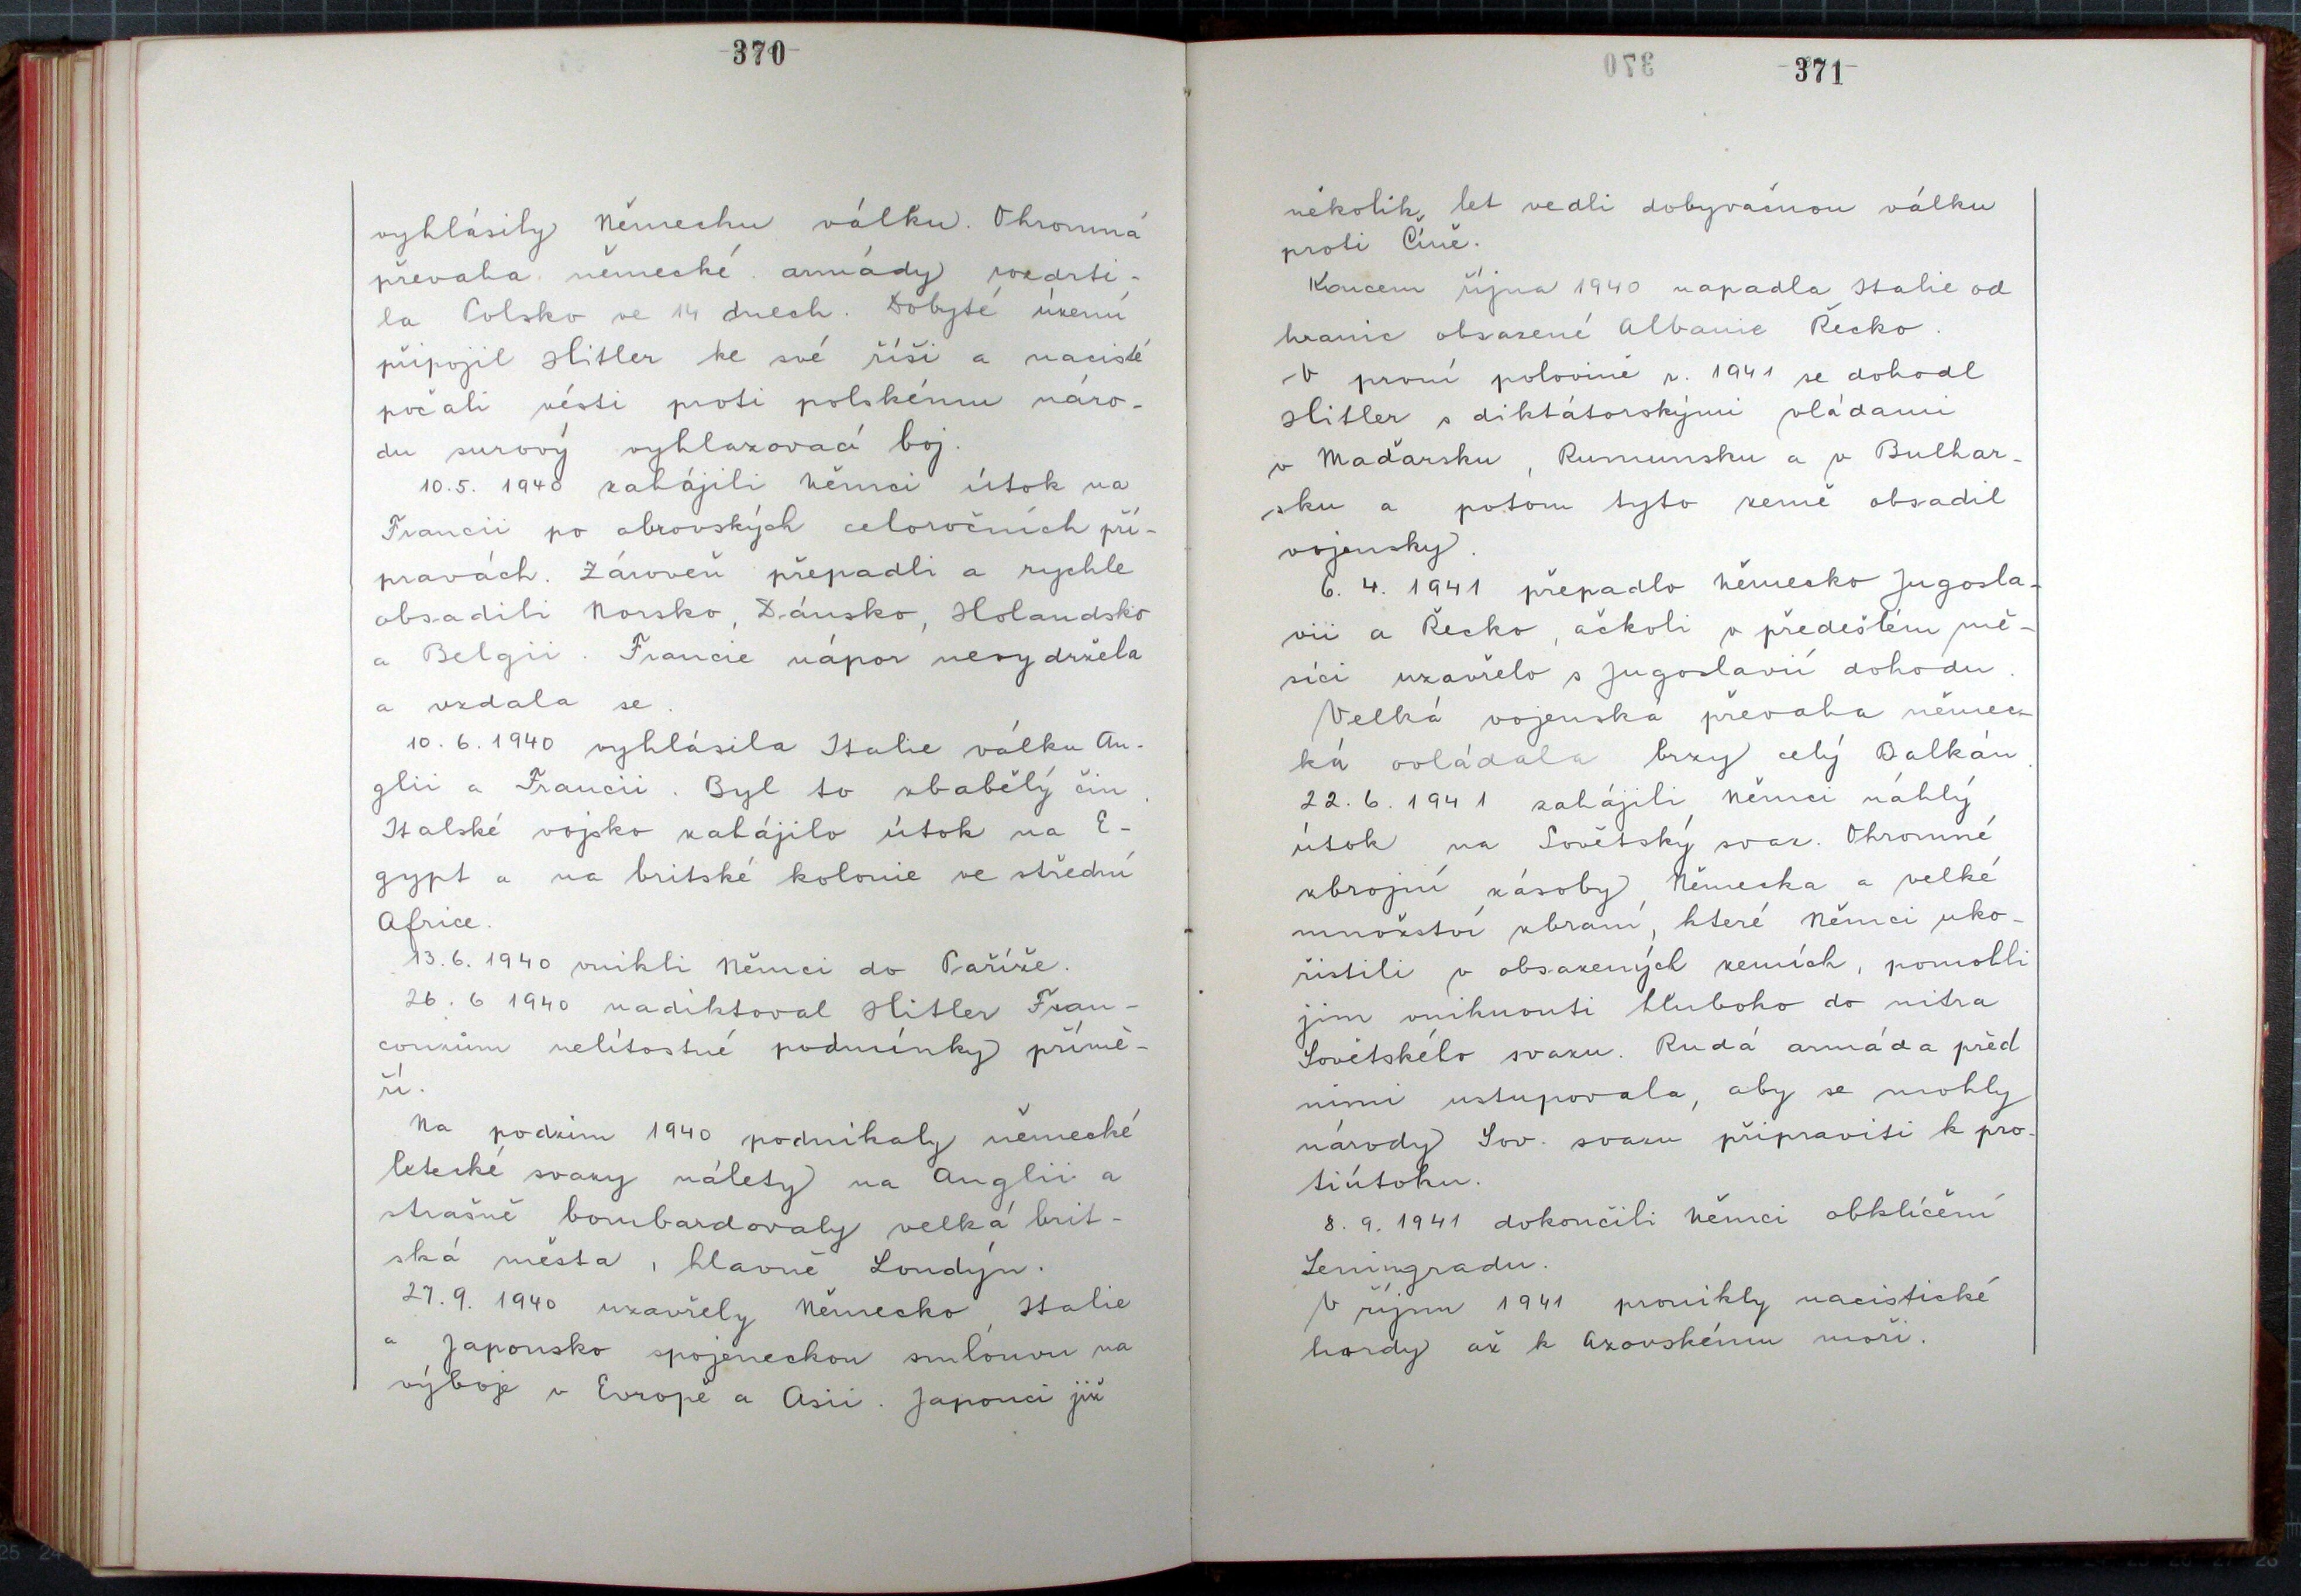 370
vyhlásily Německu válku. Ohromná
převaha německé armády rozdrti-
la Polsko ve 14 dnech. Dobyté území
připojil Hitler ke své říši a nacisté
počali vésti proti polskému náro-
du surový vyhlazovací boj.
10.5. 1940 zahájili Němci útok na
Francii po obrovských celoročních pří-
pravách. Zároveň přepadli a rychle
obsadili Norsko, Dánsko, Holandsko
a Belgii. Francie nápor nevydržela
a vzdala se.
10.6.1940 vyhlásila Italie válku An-
glii a Francii. Byl to zbabělý čin.
Italské vojsko zahájilo útok na E-
gypt a na britské kolonie ve střední
Africe.
13.6.1940 vnikli Němci do Paříže.
26.6 1940 nadiktoval Hitler Fran-
couzům nelítostné podmínky přímě-
ří.
Na podzim 1940 podnikaly německé
letecké svazy nálety na Anglii a
strašně bombardovaly velká brit-
ská města, hlavně Londýn.
27.9. 1940 uzavřely Německo, Italie
a Japonsko spojeneckou smlouvu na
výboje v Evropě a Asii. Japonci již
370
371
několik let vedli dobyvačnou válku
proti Číně.
Koncem října 1940 napadla Italie od
hranic obsazené Albanie Řecko.
V první polovině r. 1941 se dohodl
Hitler s diktátorskými vládami
v Maďarsku, Rumunsku a v Bulhar-
sku a potom tyto země obsadil
vojensky.
6. 4. 1941 přepadlo Německo Jugosla-
vii a Řecko, ačkoli v předešlém mě-
síci uzavřelo s Jugoslavií dohodu.
Velká vojenská převaha němec-
ká ovládala brzy celý Balkán.
22.6.1941 zahájili Němci náhlý
útok na Sovětský svaz. Ohromné
zbrojní zásoby Německa a velké
množství zbraní, které Němci uko-
řistili v obsazených zemích, pomohli
jim vniknouti hluboko do nitra
Sovětského svazu. Rudá armáda před
nimi ustupovala, aby se mohly
národy Sov. svazu připraviti k pro-
tiútoku.
8.9.1941 dokončili Němci obklíčení
Leningradu.
V říjnu 1941 pronikly nacistické
hordy až k Azovskému moři.